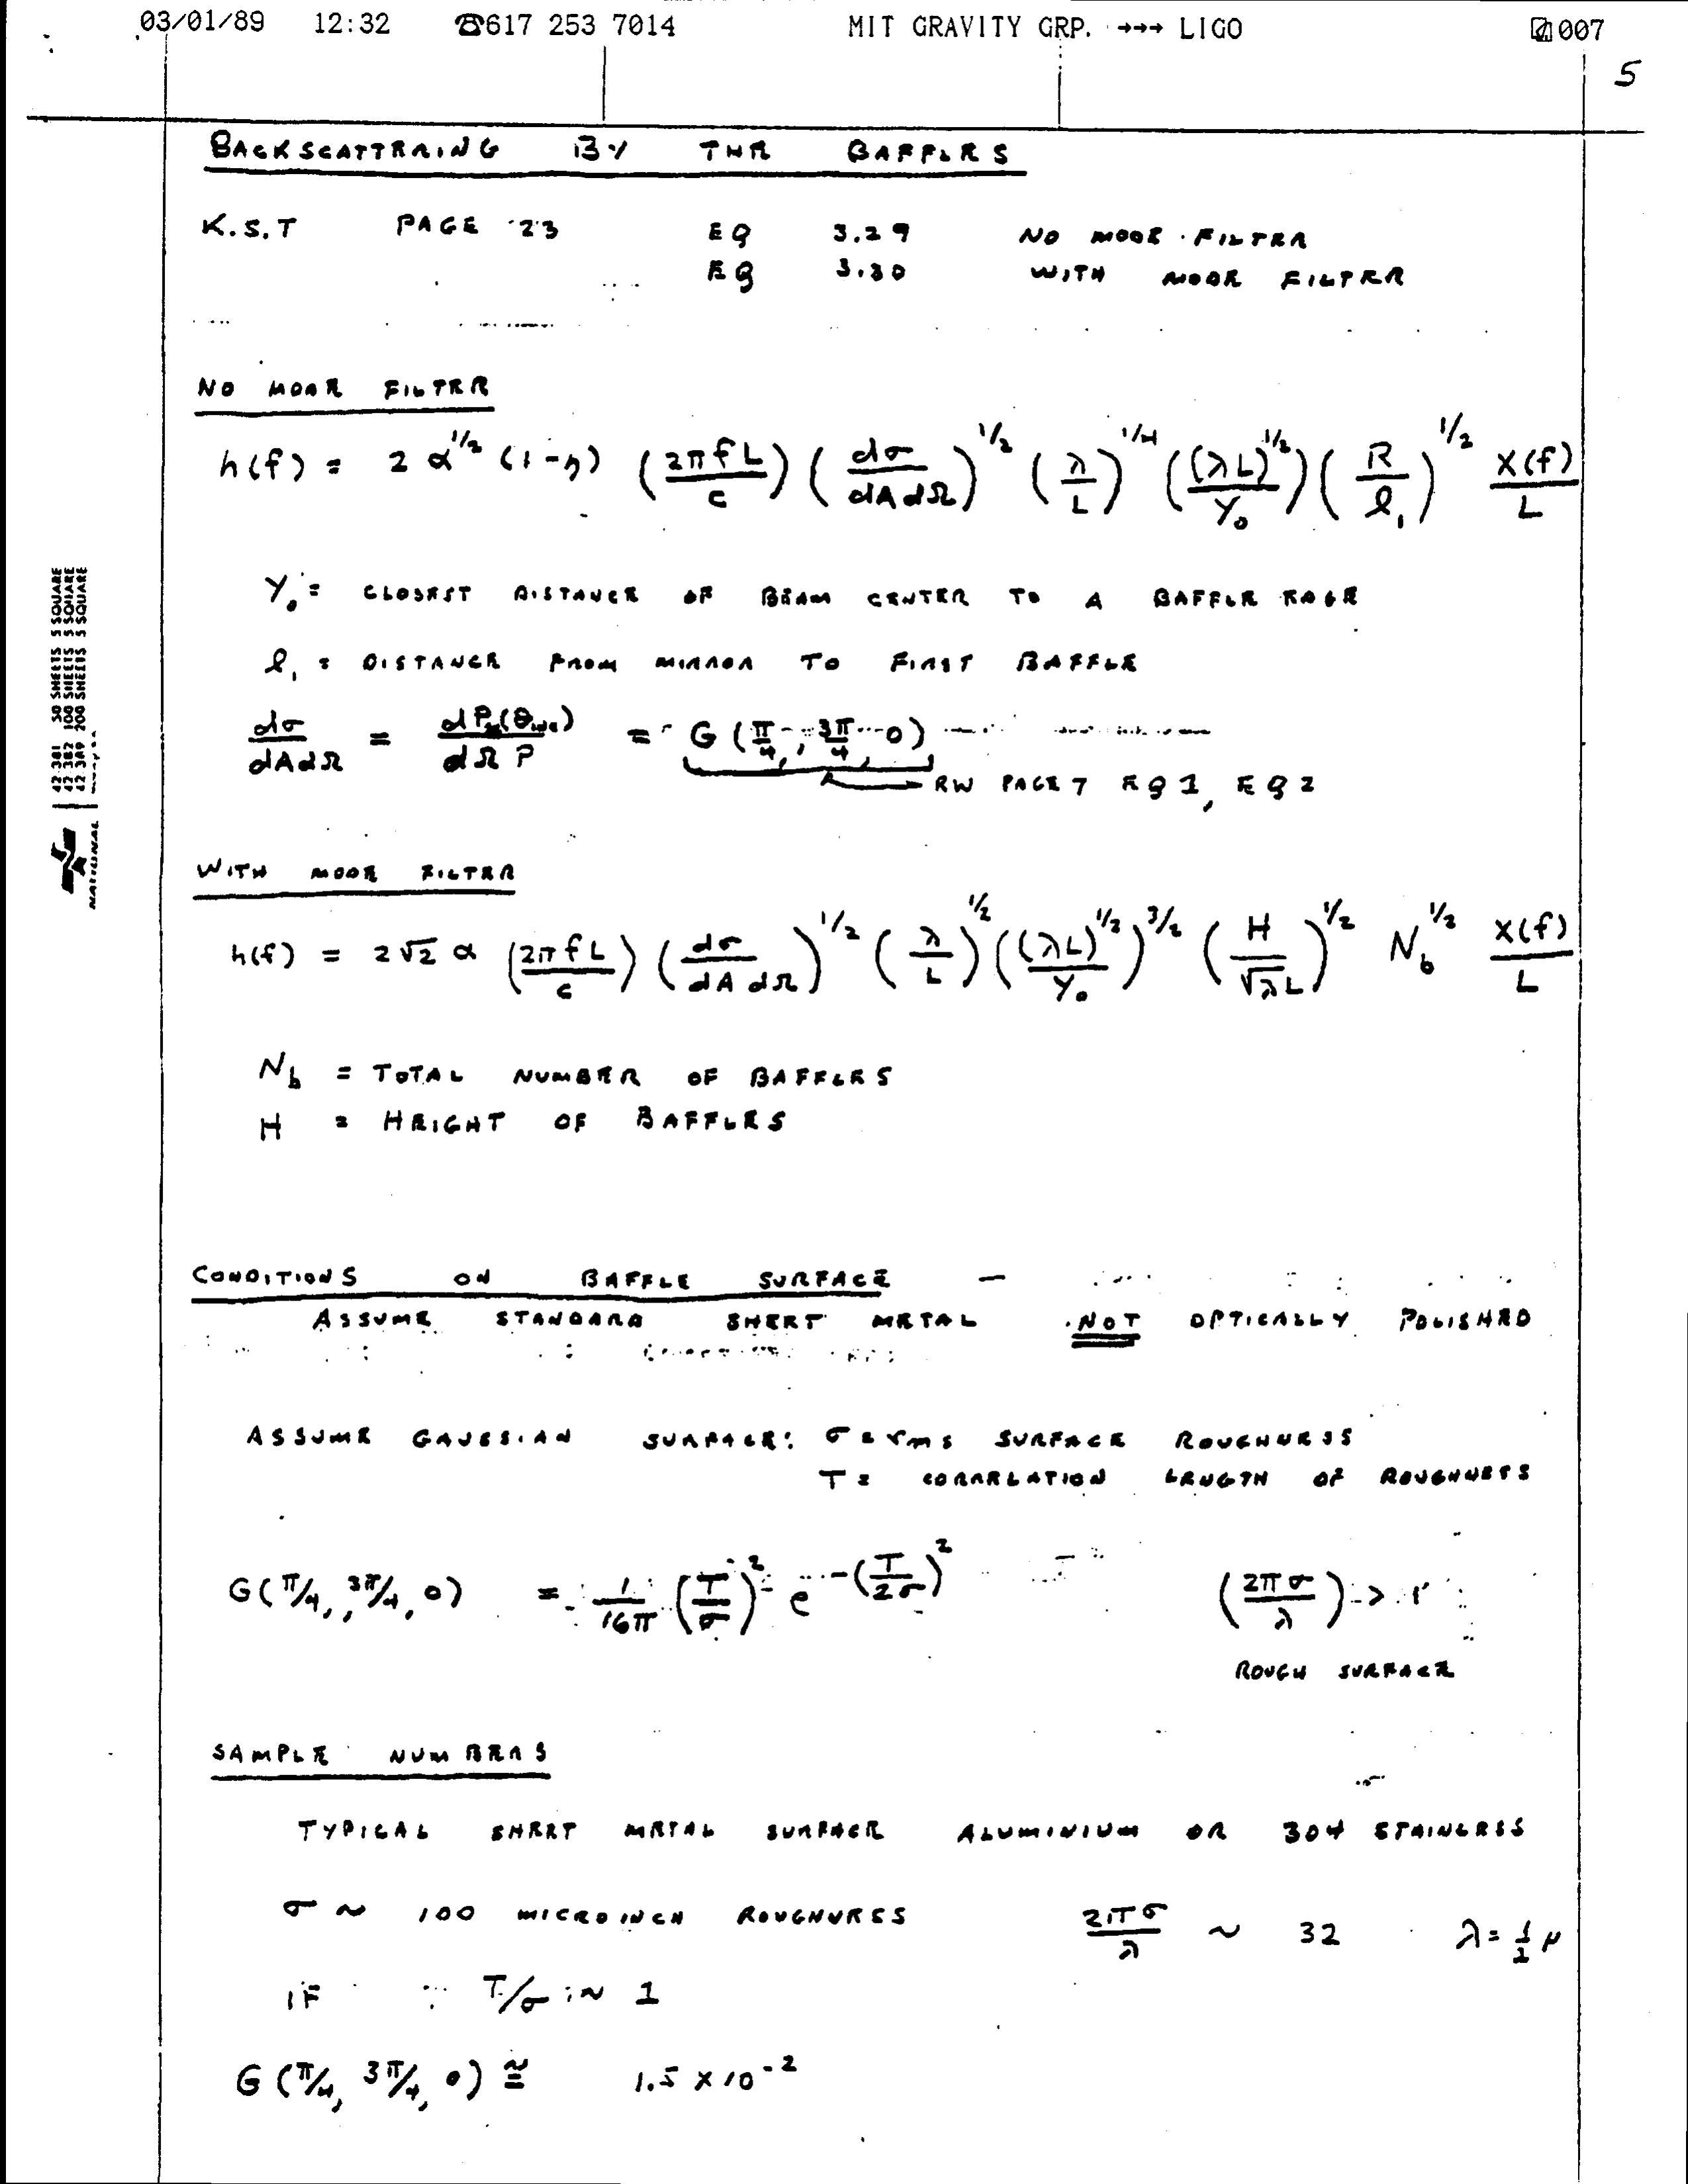 03/01/89 12:32 ☎617 253 7014 MIT GRAVITY GRP. →→→ LIGO 007
5
BACKSCATTERING BY THE BAFFLES
K.S.T PAGE 23 EQ 3.29 NO MODE FILTER
EQ 3.30 WITH MODE FILTER
NO MODE FILTER
h(f) = 2 α^1/2 (1-η) (2πfL/c) (dσ/dAdΩ)^1/2 (λ/L)^1/4 ((λL)^1/2/Y₀) (R/ℓ₁)^1/2 X(f)/L
Y₀ = CLOSEST DISTANCE OF BEAM CENTER TO A BAFFLE EDGE
ℓ₁ = DISTANCE FROM MIRROR TO FIRST BAFFLE
dσ/dAdΩ = dP(θ)/dΩ P = G(π/4, 3π/4, 0)
RW PAGE 7 EQ 1, EQ 2
WITH MODE FILTER
h(f) = 2√2 α (2πfL/c) (dσ/dA dΩ)^1/2 (λ/L)^1/2 ((λL)^1/2/Y₀)^3/2 (H/√λL)^1/2 N_b^1/2 X(f)/L
N_b = TOTAL NUMBER OF BAFFLES
H = HEIGHT OF BAFFLES
CONDITIONS ON BAFFLE SURFACE —
ASSUME STANDARD SHEET METAL NOT OPTICALLY POLISHED
ASSUME GAUSSIAN SURFACE: σ = rms SURFACE ROUGHNESS
T = CORRELATION LENGTH OF ROUGHNESS
G(π/4, 3π/4, 0) = 1/16π (T/σ)^2 e^-(T/2σ)^2 (2πσ/λ) > 1
ROUGH SURFACE
SAMPLE NUMBERS
TYPICAL SHEET METAL SURFACE ALUMINIUM OR 304 STAINLESS
σ ~ 100 MICROINCH ROUGHNESS 2πσ/λ ~ 32 λ = 1/2 μ
IF T/σ ~ 1
G(π/4, 3π/4, 0) ≅ 1.5 × 10^-2
42-381 50 SHEETS 5 SQUARE
42-382 100 SHEETS 5 SQUARE
42-389 200 SHEETS 5 SQUARE
NATIONAL